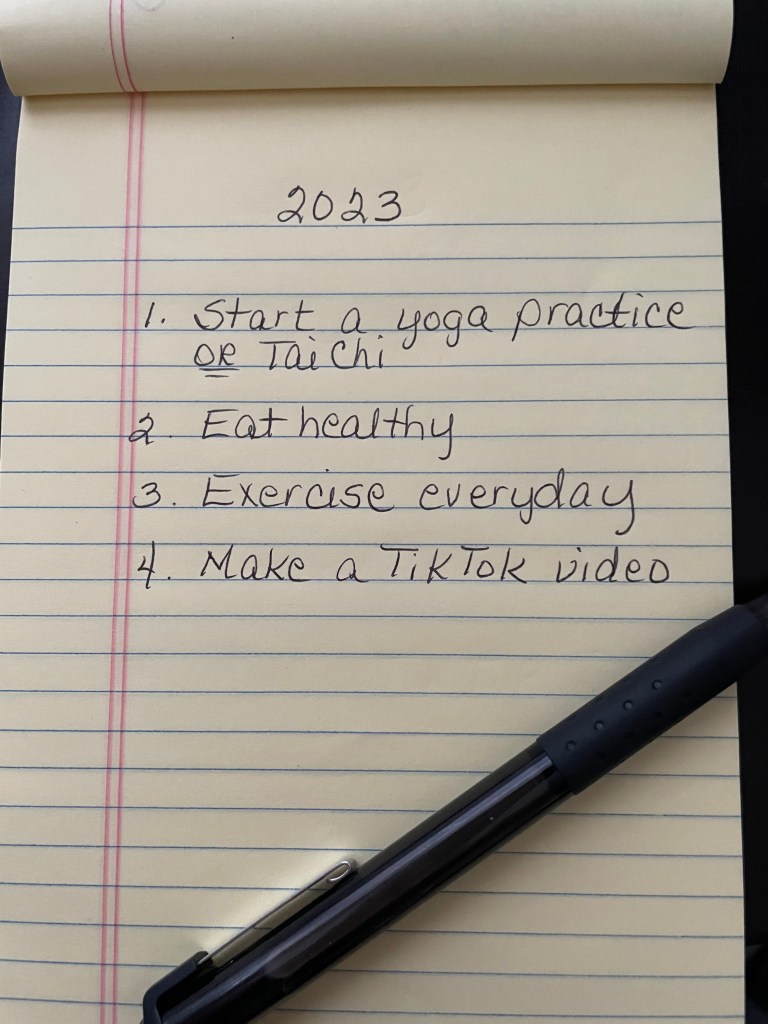 2023
1. Start a yoga practice
OR Tai Chi
2. Eat healthy
3. Exercise everyday
4. Make a TikTok video